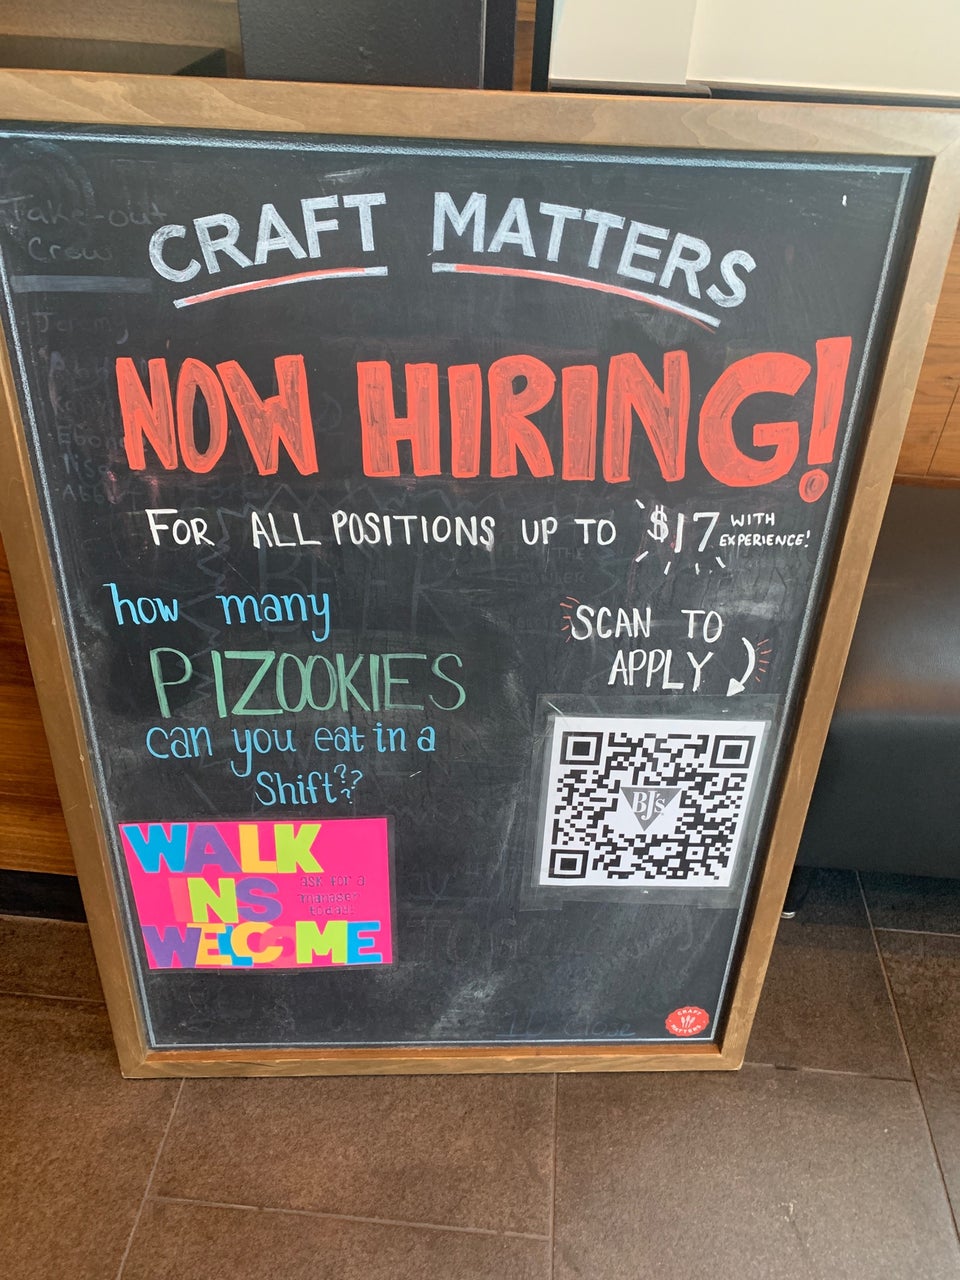 CRAFT MATTERS
NOW HIRING!
FOR ALL POSITIONS UP TO $17 WITH EXPERIENCE!
how many
PIZOOKIES
can you eat in a
Shift???
SCAN TO
APPLY
BJ's
WALK
INS
ask for a
manager
today!
WELCOME
Take-out
Crew
Jeremy
CRAFT
MATTERS